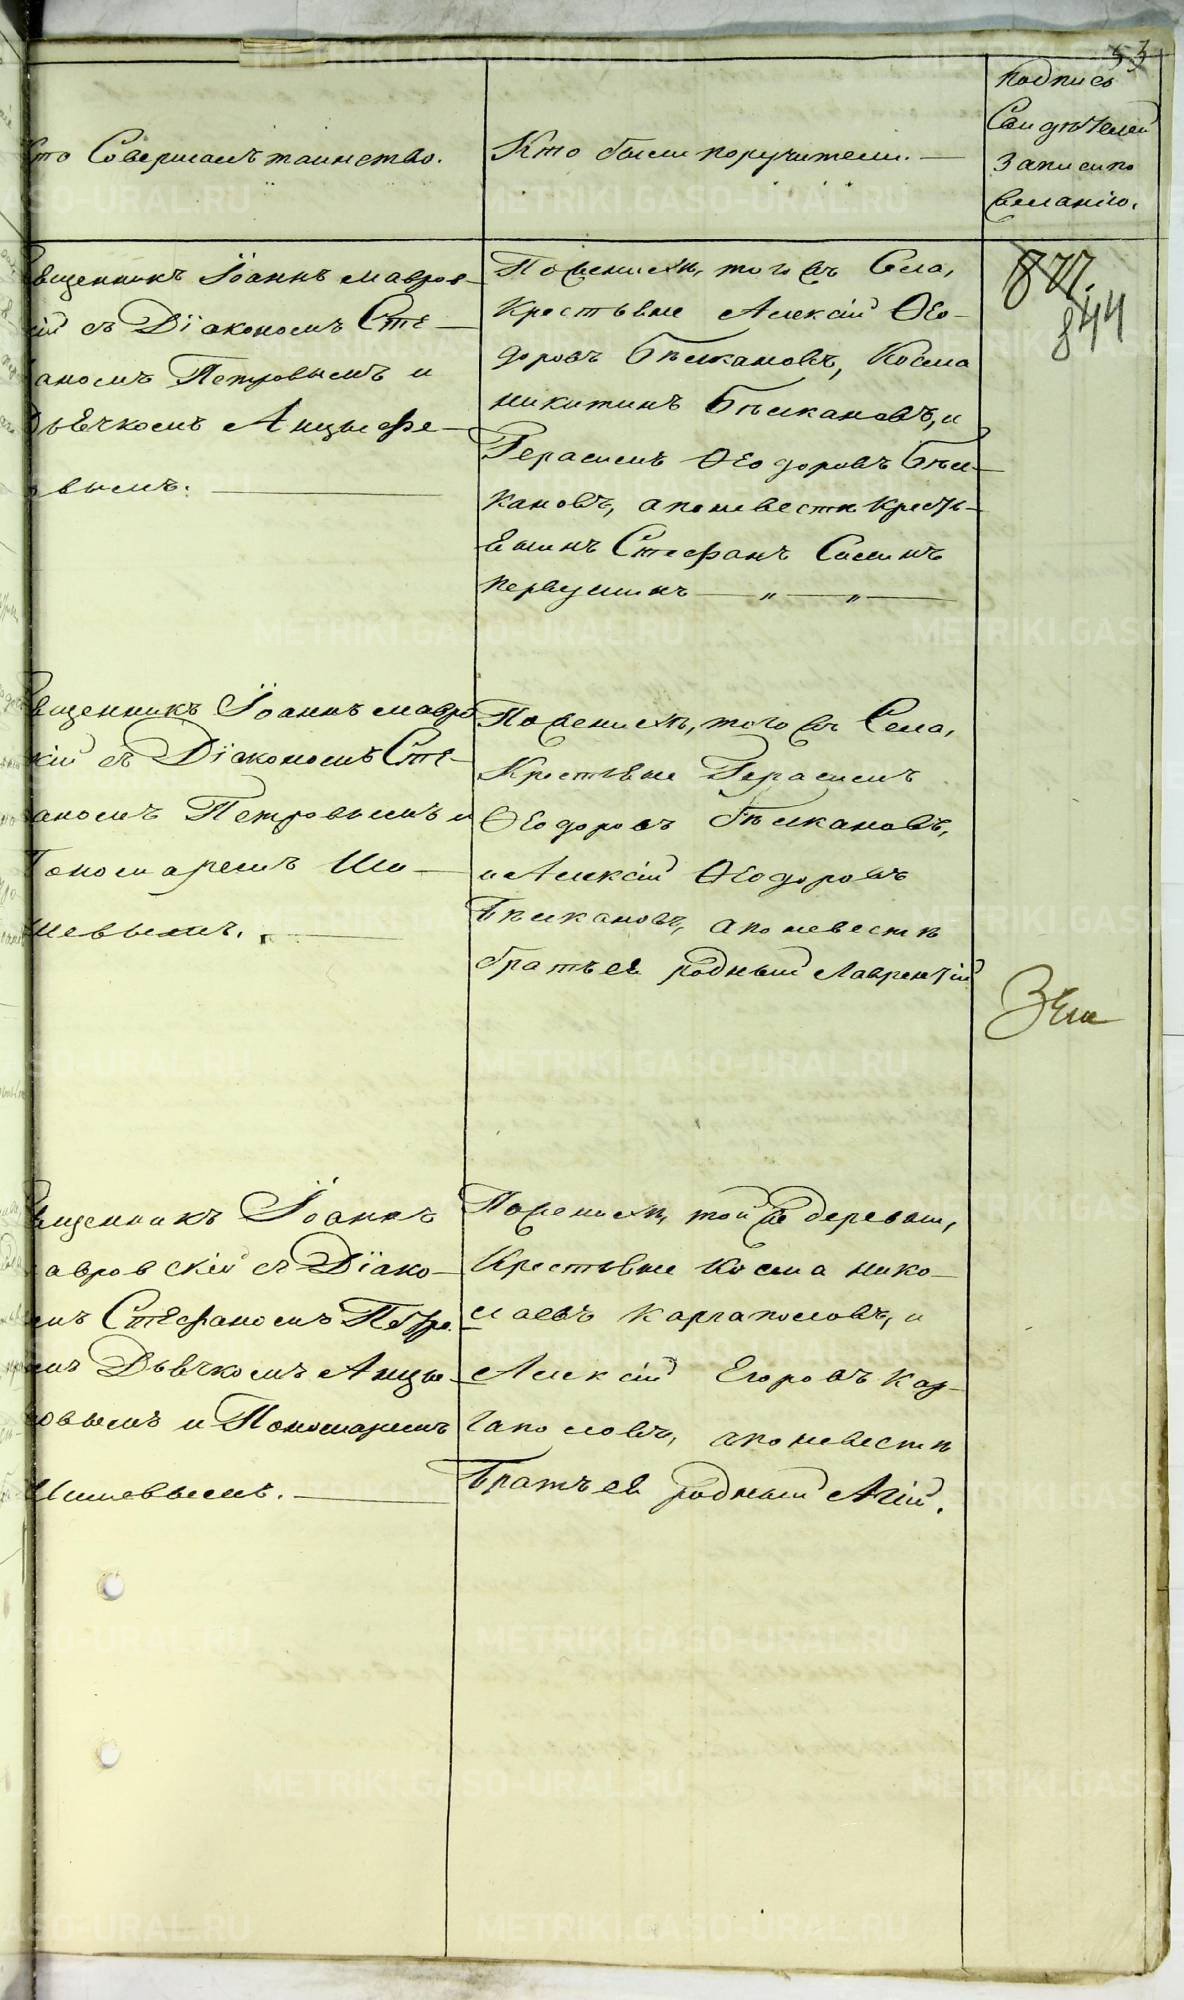 53
Кто Совершалъ таинство.
Кто были поручители.
подпись
Свидѣтелей
записи по
Желанію.
877.
844
Священникъ Іоаннъ Мавров-
скій съ Діакономъ Сте-
фаномъ Петровымъ и
Дьячкомъ Анцыфе-
ровымъ.
По женихѣ, того жъ Села,
Крестьяне Алексій Ѳео-
доровъ Бѣлкановъ, Косма
Никитинъ Бѣлкановъ, и
Герасимъ Ѳеодоровъ Бѣл-
кановъ, а по невестѣ Кресть-
янинъ Стефанъ Силинъ
Первушинъ — „ — „ —
Священникъ Іоаннъ Мавро
скій съ Діакономъ Сте-
фаномъ Петровымъ и
Пономаремъ Ши-
шевымъ.
По женихѣ, того жъ Села,
Крестьяне Герасимъ
Ѳеодоровъ Бѣлкановъ,
и Алексій Ѳеодоровъ
Бѣлкановъ, а по невестѣ
братъ ея родный Лаврентій
Священникъ Іоаннъ
Мавровскій съ Діако-
номъ Стефаномъ Петро
Дьячкомъ Анцы-
ровымъ и Пономаремъ
Шишевымъ.
По женихѣ, той же деревни,
Крестьяне Косма Нико-
лаевъ Каргаполовъ, и
Алексій Егоровъ Кар-
гаполовъ, а по невестѣ
Братъ ея родный Агій.